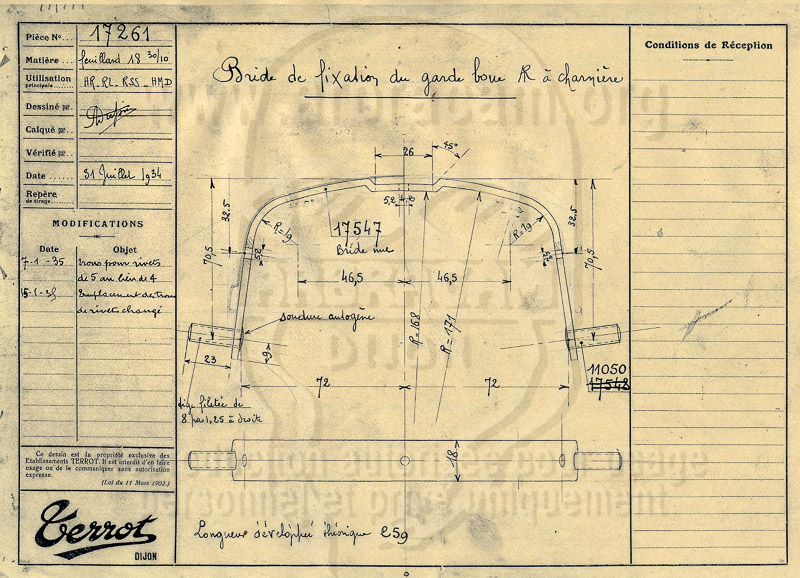 Pièce N°... 17261
Matière.. feuillard 18 30/10
Utilisation HR_RL_RSS_HMD
principales
Dessiné par.
Calqué par..
Vérifié par..
Date 31 Juillet 1934
Repère
de tirage
MODIFICATIONS
Date Objet
7-1-35 trous pour rivets
de 5 au lieu de 4
Emplacement des trous
de rivets changé
Ce dessin est la propriété exclusive des
Etablissements TERROT. Il est interdit d'en faire
usage ou de le communiquer sans autorisation
expresse.
(Loi du 11 Mars 1902.)
Terrot
DIJON
Bride de fixation du garde boue AR à charnière
26 45°
5,2 4,8
32,5 32,5
70,5 70,5
R=19 R=19
17547
Bride nue
5,2 5,2
46,5 46,5
R=168 R=171
soudure autogène
23 9
72 72
11050
17548
tige filetée de
8 pas 1,25 à droite
18
Longueur développée théorique 259
Conditions de Réception
personnel et privé uniquement